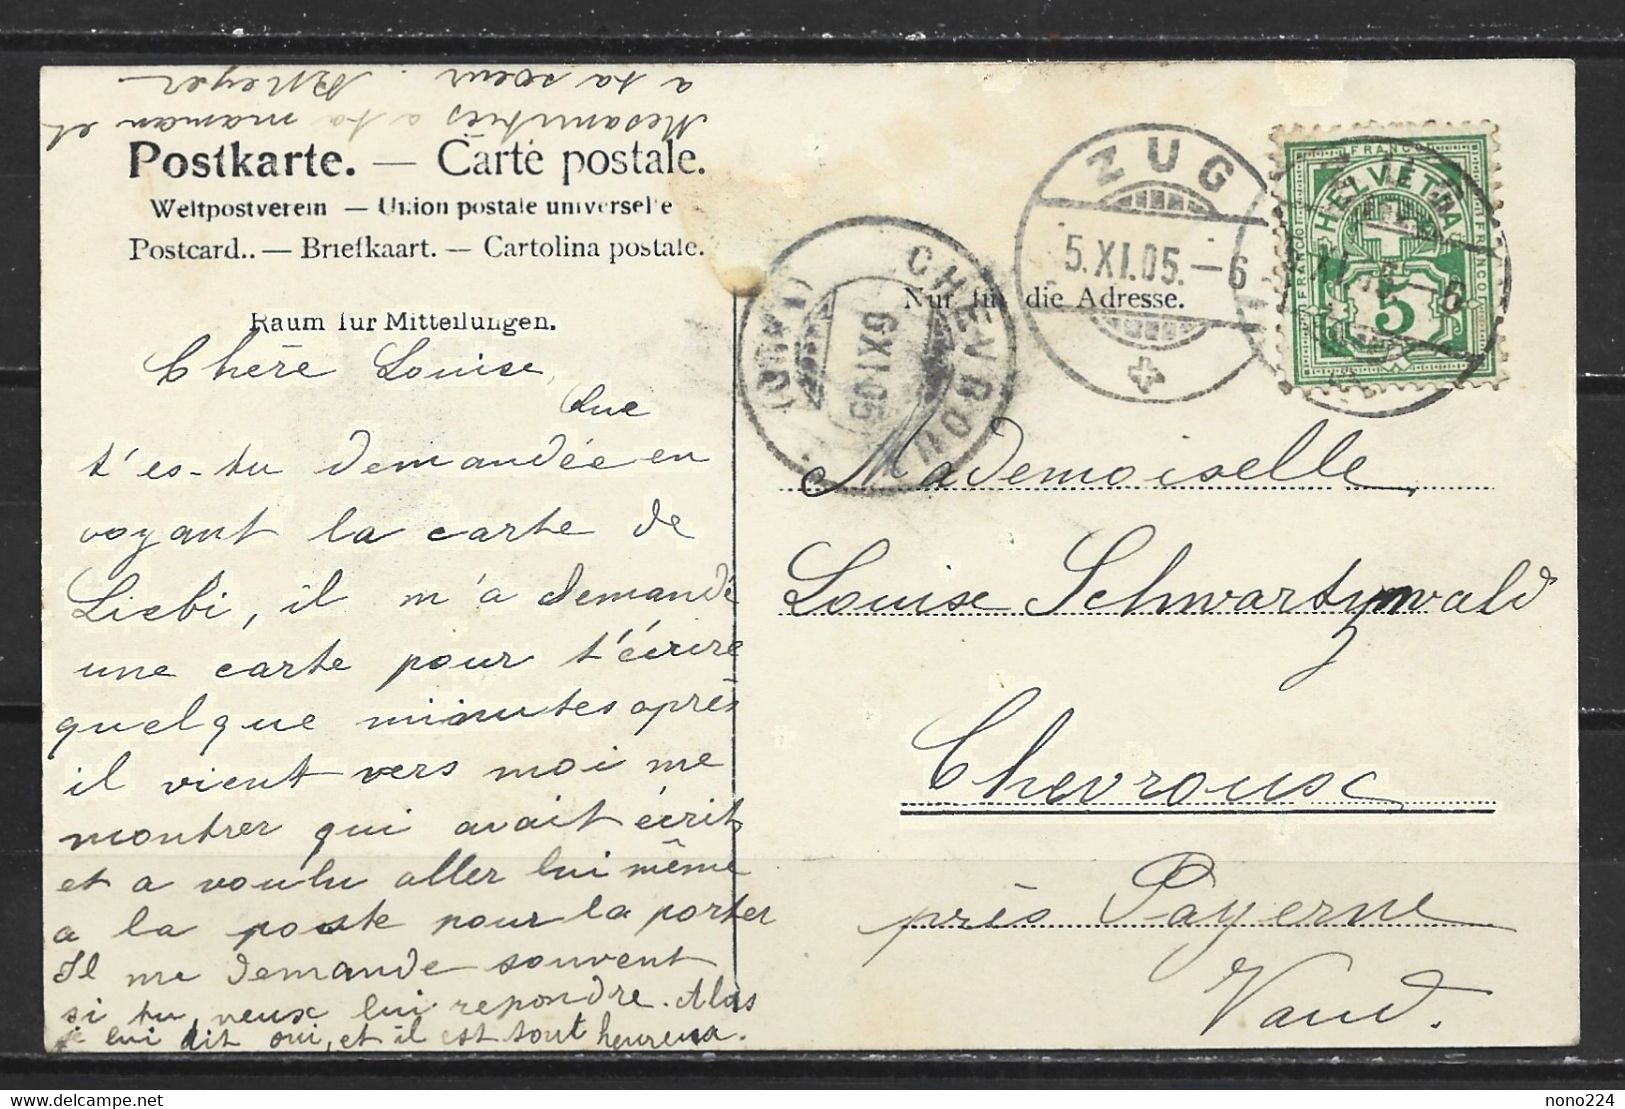 Mes amitiés a ta maman et
a ta soeur. AMeyer
Postkarte. — Carte postale.
Weltpostverein — Union postale universelle
Postcard.. — Briefkaart. — Cartolina postale.
Raum für Mitteilungen.
Chère Louise,
Que
t'es-tu demandée en
voyant la carte de
Liebi, il m'a demandé
une carte pour t'écrire
quelque minutes après
il vient vers moi me
montrer qui avait écrit,
et a voulu aller lui même
a la poste pour la porter
Il me demande souvent
si tu veux lui repondre. Alas
je lui dit oui, et il est tout heureux.
CHEVROUX
(VAUD)
6 XI 05
ZUG
5.XI.05.–6
ZUG
XI.05.–6
FRANCO
HELVETIA
FRANCO
FRANCO
5
Nur für die Adresse.
Mademoiselle,
Louise Schwartzwald
Chevroux
près Payerne
Vaud.
delcampe.net
nono224